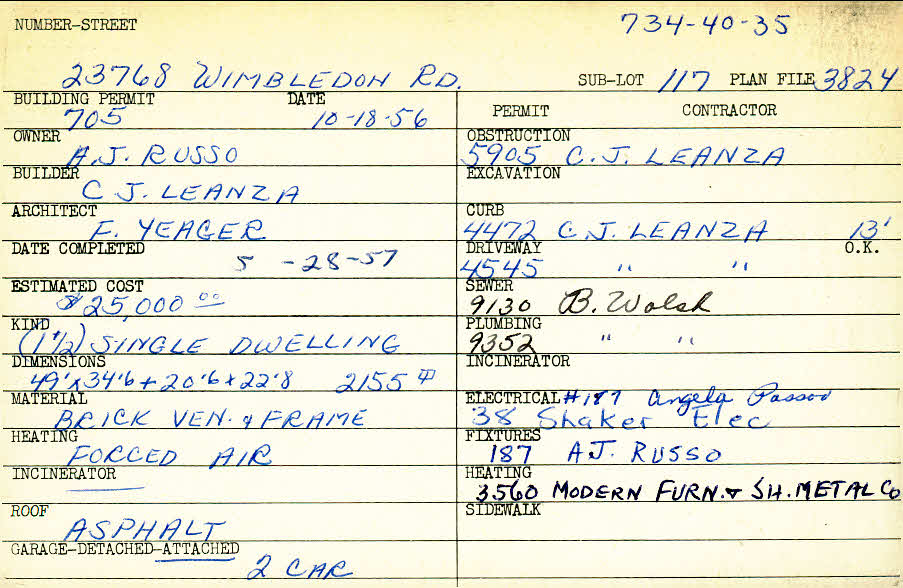 NUMBER-STREET 734-40-35
23768 WIMBLEDON RD. SUB-LOT 117 PLAN FILE 3824
BUILDING PERMIT DATE
705 10-18-56
OWNER
A.J. RUSSO
BUILDER
C J. LEANZA
ARCHITECT
F. YEAGER
DATE COMPLETED
5 -28-57
ESTIMATED COST
$25,000 00
KIND
(1 1/2) SINGLE DWELLING
DIMENSIONS
49'x34'6+20'6x22'8 2155
MATERIAL
BRICK VEN. & FRAME
HEATING
FORCED AIR
INCINERATOR
ROOF
ASPHALT
GARAGE-DETACHED-ATTACHED
2 CAR
PERMIT CONTRACTOR
OBSTRUCTION
5905 C.J. LEANZA
EXCAVATION
CURB
4472 C.J. LEANZA 13'
DRIVEWAY O.K.
4545 " "
SEWER
9130 B. Walsh
PLUMBING
9352 " "
INCINERATOR
ELECTRICAL #187 Angelo
38 Shaker Elec
FIXTURES
187 A.J. RUSSO
HEATING
3560 MODERN FURN. & SH. METAL Co
SIDEWALK